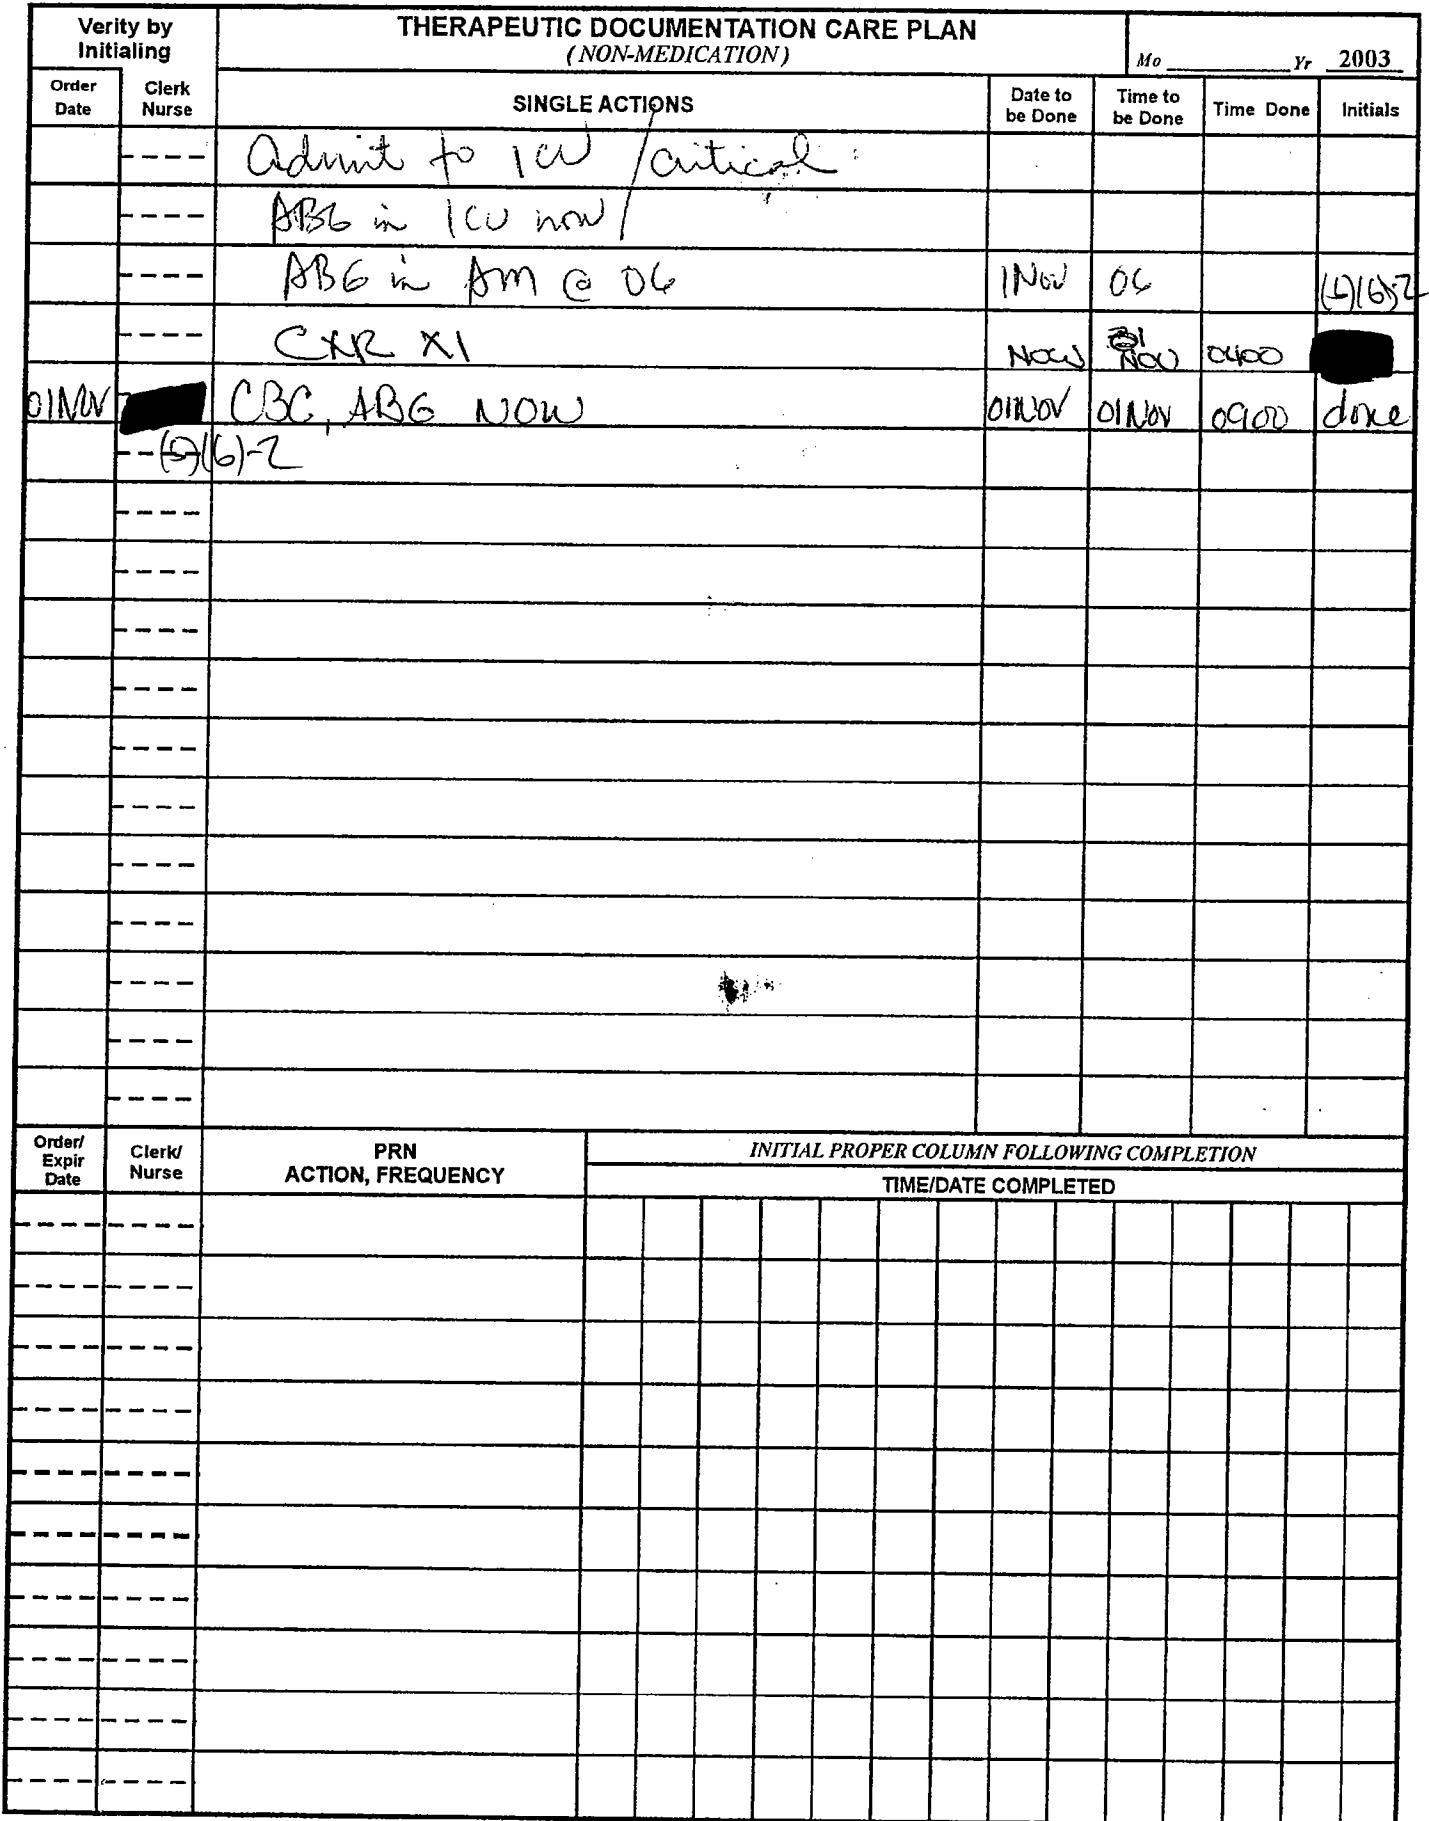 Verity by Initialing
THERAPEUTIC DOCUMENTATION CARE PLAN
(NON-MEDICATION)
Mo Yr 2003
Order Date
Clerk Nurse
SINGLE ACTIONS
Date to be Done
Time to be Done
Time Done
Initials
Admit to ICU / critical
ABG in ICU now /
ABG in AM @ 06 1Nov 06 (6)(6)-2
CXR X1 NOW NOV 0400
01NOV CBC, ABG NOW 01NOV 01NOV 0900 done
(6)(6)-2
Order/ Expir Date
Clerk/ Nurse
PRN
ACTION, FREQUENCY
INITIAL PROPER COLUMN FOLLOWING COMPLETION
TIME/DATE COMPLETED